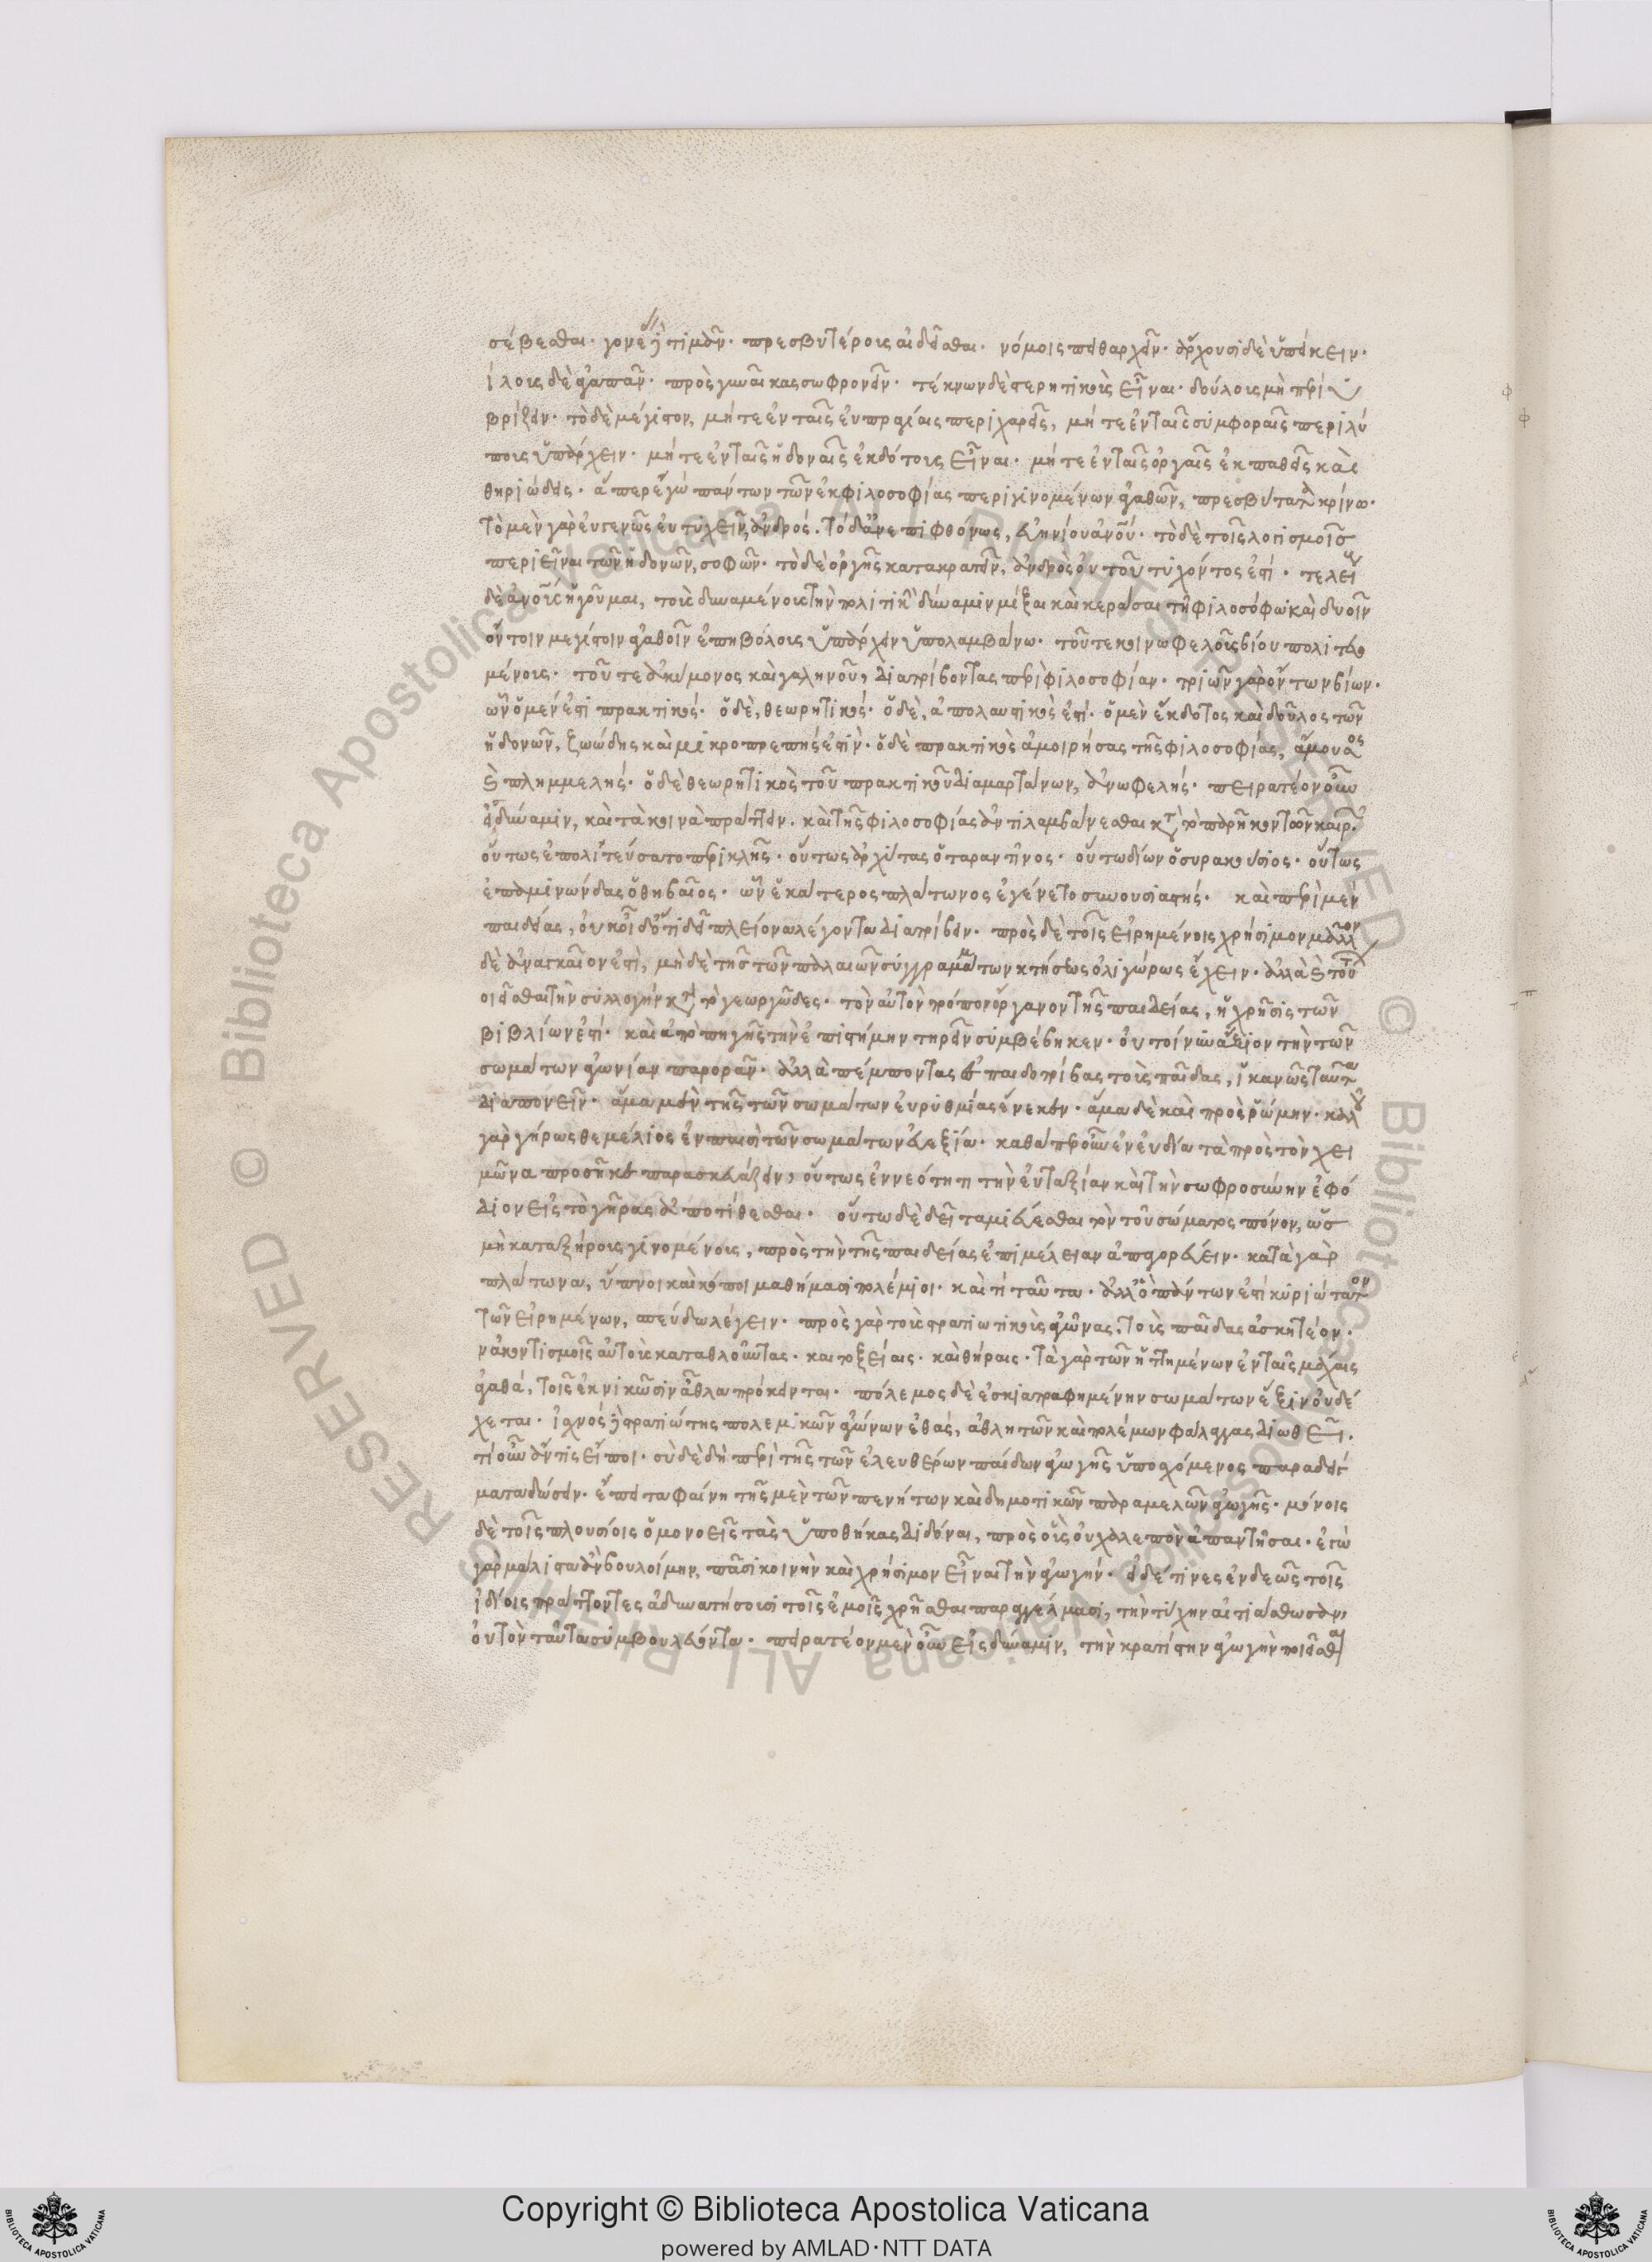 σέβεσθαι· γονέας τιμᾶν· πρεσβυτέροις αἰδεῖσθαι· νόμοις πειθαρχεῖν· ἄρχουσι δὲ ὑπείκειν·
ίλοις δὲ ἀγαπᾶν· πρὸς γυναῖκας σωφρονεῖν· τέκνων δὲ στερητικοὺς εἶναι· δούλοις μὴ περιυ
βρίζειν· τὸ δὲ μέγιστον, μήτε ἐν ταῖς εὐπραγίαις περιχαρεῖς, μήτε ἐν ταῖς συμφοραῖς περιλύ
ποις ὑπάρχειν· μήτε ἐν ταῖς ἡδοναῖς ἐκδότοις εἶναι· μήτε ἐν ταῖς ὀργαῖς ἐκπαθεῖς καὶ
θηριώδεις· ἅπερ ἐγὼ πάντων τῶν ἐκ φιλοσοφίας περιγινομένων ἀγαθῶν, πρεσβύτατα κρίνω·
τὸ μὲν γὰρ εὐγενῶς εὐτυχεῖν, ἀνδρός. τὸ δ' ἀνεπιφθόνως, εὐηνίου ἀνοῦ· τὸ δὲ τοῖς λογισμοῖς
περιεῖναι τῶν ἡδονῶν, σοφῶν· τὸ δὲ ὀργῆς κατακρατεῖν, ἀνδρὸς οὐ τοῦ τυχόντος ἐστί· τελείους
δὲ ἀνοὺς ἡγοῦμαι, τοὺς δυναμένους τὴν πολιτικὴν δύναμιν μίξαι καὶ κεράσαι τῇ φιλοσόφῳ καὶ δυοῖν
ὄντοιν μεγίστοιν ἀγαθοῖν ἐπηβόλοις ὑπάρχειν ὑπολαμβάνω· τοῦ τε κοινωφελοῦς βίου πολιτευο
μένοις· τοῦ τε ἀκύμονος καὶ γαληνοῦ, διατρίβοντας περὶ φιλοσοφίαν· τριῶν γὰρ ὄντων βίων·
ὧν ὁ μέν ἐστι πρακτικός· ὁ δὲ, θεωρητικός· ὁ δὲ, ἀπολαυστικὸς ἐστί· ὁ μὲν ἔκδοτος καὶ δοῦλος τῶν
ἡδονῶν, ζωώδης καὶ μικροπρεπής ἐστὶν· ὁ δὲ πρακτικὸς ἀμοιρήσας τῆς φιλοσοφίας, ἄμουσος
καὶ πλημμελής· ὁ δὲ θεωρητικὸς τοῦ πρακτικοῦ διαμαρτάνων, ἀνωφελής· πειρατέον οὖν
εἰς δύναμιν, καὶ τὰ κοινὰ πράττειν· καὶ τῆς φιλοσοφίας ἀντιλαμβάνεσθαι κατὰ τὸ παρῆκον τῶν καιρῶν·
οὕτως ἐπολιτεύσατο περικλῆς· οὕτως ἀρχύτας ὁ ταραντῖνος· οὕτω δίων ὁ συρακούσιος· οὕτως
ἐπαμινώνδας ὁ θηβαῖος· ὧν ἑκάτερος πλάτωνος ἐγένετο συνουσιαστής· καὶ περὶ μὲν
παιδείας, οὐκ οἶδ' ὅτι δεῖ πλείονα λέγοντα διατρίβειν· πρὸς δὲ τοῖς εἰρημένοις χρήσιμον μᾶλλον
δὲ ἀναγκαῖον ἐστὶ, μὴ δὲ τῆς τῶν παλαιῶν συγγραμμάτων κτήσεως ὀλιγώρως ἔχειν· ἀλλὰ καὶ τούτων π
οιεῖσθαι τὴν συλλογὴν κατὰ τὸ γεωργῶδες· τὸν αὐτὸν τρόπον ὄργανον τῆς παιδείας, ἡ χρῆσις τῶν
βιβλίων ἐστί· καὶ ἀπὸ πηγῆς τὴν ἐπιστήμην τηρεῖν συμβέβηκεν· οὐ τοίνυν ἄξιον τὴν τῶν
σωμάτων ἀγωνίαν παρορᾶν· ἀλλὰ πέμποντας εἰς παιδοτρίβας τοὺς παῖδας, ἱκανῶς ταῦτα
διαπονεῖν· ἅμα μὲν τῆς τῶν σωμάτων εὐρυθμίας ἕνεκεν· ἅμα δὲ καὶ πρὸς ῥώμην· καλοῦ
γὰρ γήρως θεμέλιος ἐν παισὶ τῶν σωμάτων εὐεξία· καθάπερ οὖν ἐν εὐδίᾳ τὰ πρὸς τὸν χει
μῶνα προσῆκε παρασκευάζειν, οὕτως ἐν νεότητι τὴν εὐταξίαν καὶ τὴν σωφροσύνην ἐφό
διον εἰς τὸ γῆρας ἀποτίθεσθαι· οὕτω δὲ δεῖ ταμιεύεσθαι τὸν τοῦ σώματος πόνον, ὡς
μὴ καταξήροις γινομένοις, πρὸς τὴν τῆς παιδείας ἐπιμέλειαν ἀπαγορεύειν· κατὰ γὰρ
πλάτωνα, ὕπνοι καὶ κόποι μαθήμασι πολέμιοι· καὶ τί ταῦτα· ἀλλ' ὃ πάντων ἐστὶ κυριώτατον
τῶν εἰρημένων, σπεύδω λέγειν· πρὸς γὰρ τοὺς στρατιωτικοὺς ἀγῶνας, τοὺς παῖδας ἀσκητέον·
ν ἀκοντισμοῖς αὐτοὺς καταθλοῦντας· καὶ τοξείαις· καὶ θήραις· τὰ γὰρ τῶν ἡττημένων ἐν ταῖς μάχαις
ἀγαθά, τοῖς ἐκνικῶσιν ἆθλα πρόκεινται· πόλεμος δὲ ἐσκιατραφημένην σωμάτων ἕξιν οὐ δέ
χεται· ἰσχνὸς δὲ στρατιώτης πολεμικῶν ἀγώνων ἐθάς, ἀθλητῶν καὶ πολέμων φάλαγγας διωθεῖ.
τί οὖν ἄν τις εἴποι· σὺ δὲ δὴ περὶ τῆς τῶν ἐλευθέρων παίδων ἀγωγῆς ὑποσχόμενος παραγγέλ
ματα δώσειν· ἔπειτα φαίνῃ τῆς μὲν τῶν πενήτων καὶ δημοτικῶν παραμελῶν ἀγωγῆς· μόνοις
δὲ τοῖς πλουσίοις ὁμονοεῖς τὰς ὑποθήκας διδόναι, πρὸς οὓς οὐ χαλεπὸν ἀπαντῆσαι· ἐγὼ
γὰρ μάλιστα ἂν βουλοίμην, πᾶσι κοινὴν καὶ χρήσιμον εἶναι τὴν ἀγωγήν· εἰ δέ τινες ἐνδεῶς τοῖς
ἰδίοις πράττοντες ἀδυνατήσουσι τοῖς ἐμοῖς χρῆσθαι παραγγέλμασι, τὴν τύχην αἰτιάσθωσαν,
οὐ τὸν ταῦτα συμβουλεύοντα· πειρατέον μὲν οὖν εἰς δύναμιν, τὴν κρατίστην ἀγωγὴν ποιεῖσθαι
© Biblioteca Apostolica Vaticana ALL RIGHTS RESERVED
Copyright © Biblioteca Apostolica Vaticana
powered by AMLAD・NTT DATA